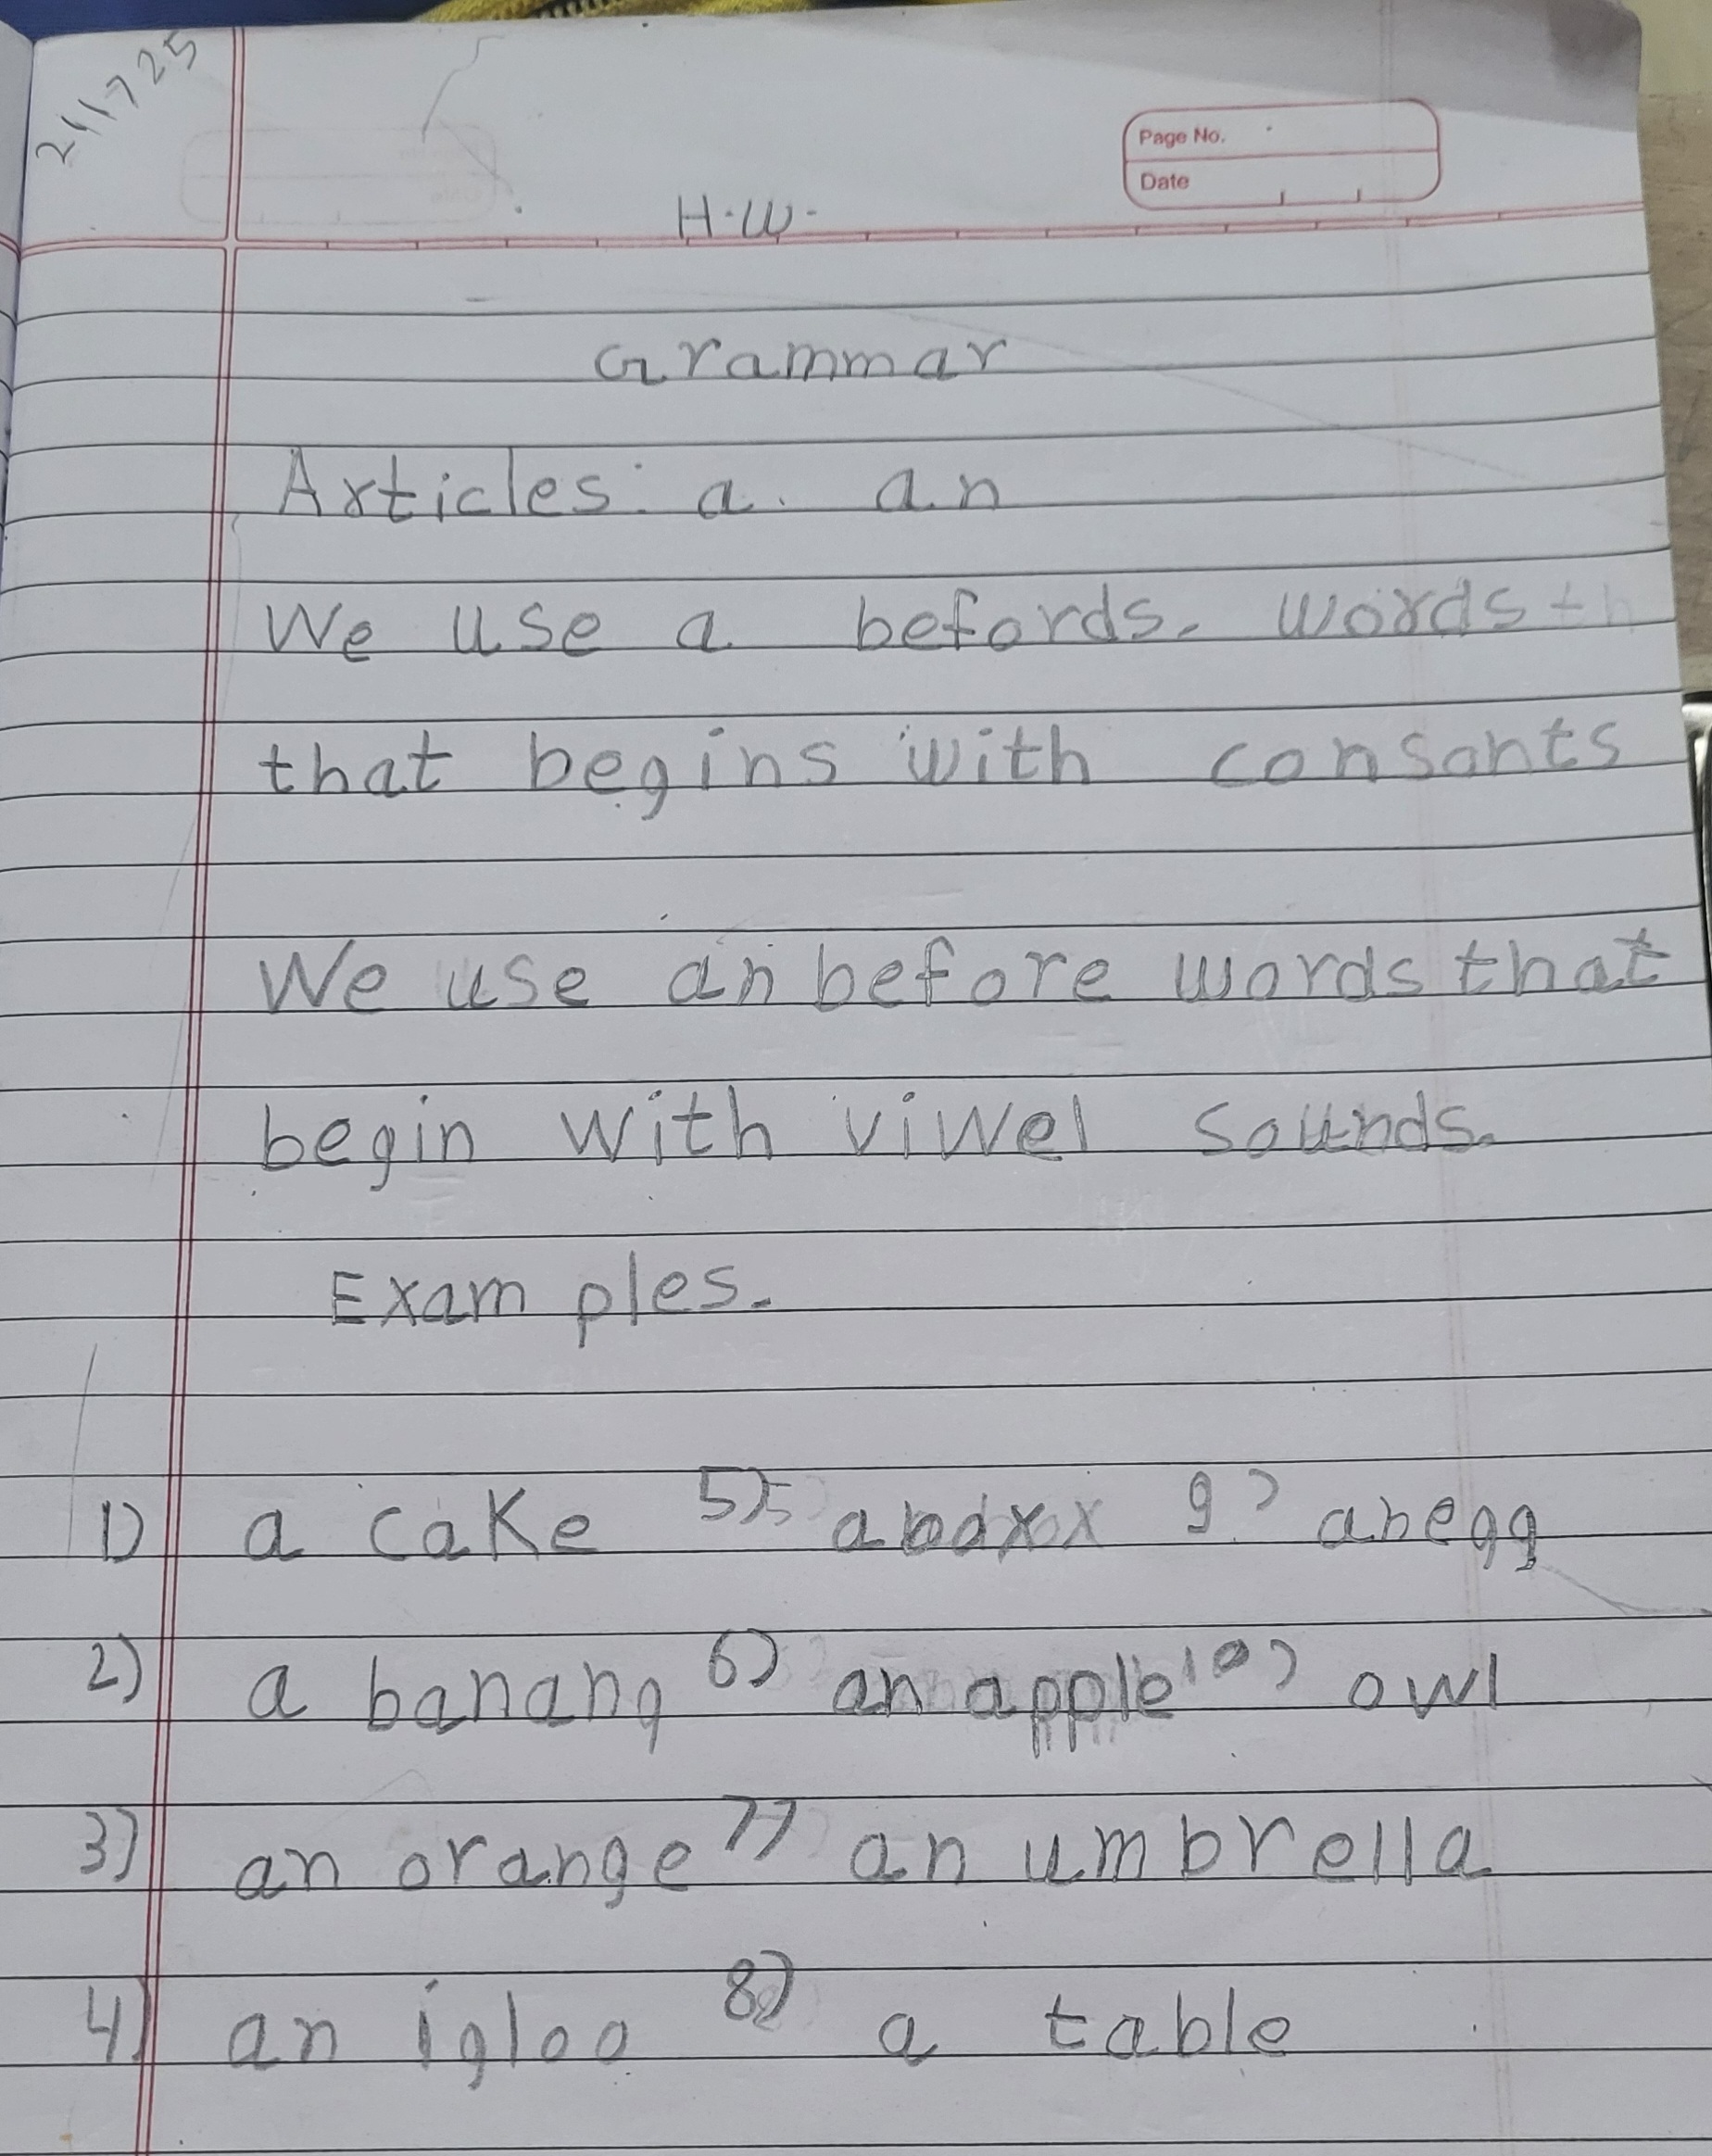 211725
Page No.
Date
H.W.
Grammar
Articles: a. an
We use a befords. words th
that begins with consonts
We use an before words that
begin with viwel sounds.
Exam ples.
1) a cake 5) 9) an egg
2) a banana 6) an apple 10) owl
3) an orange 7) an umbrella
4) an igloo 8) a table